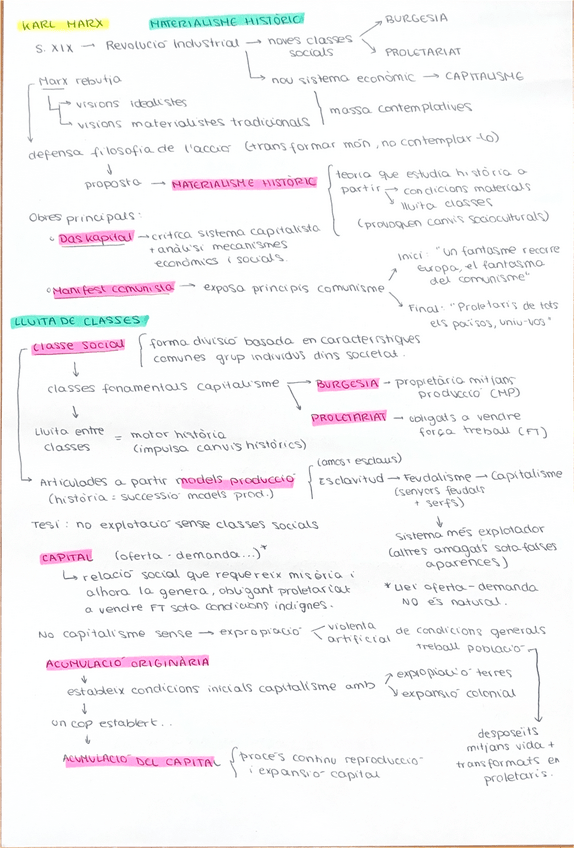 KARL MARX MATERIALISME HISTÒRIC
S. XIX → Revolució Industrial → noves classes socials
BURGESIA
PROLETARIAT
nou sistema econòmic → CAPITALISME
Marx rebutja
visions idealistes
visions materialistes tradicionals
massa contemplatives
defensa filosofia de l'acció (transformar món, no contemplar-lo)
proposta → MATERIALISME HISTÒRIC
teoria que estudia història a
partir → condicions materials
lluita classes
(provoquen canvis socioculturals)
Obres principals:
Das Kapital → crítica sistema capitalista
+ anàlisi mecanismes
econòmics i socials.
Manifest comunista → exposa principis comunisme
Inici: "un fantasme recorre
europa, el fantasma
del comunisme"
Final: "Proletaris de tots
els països, uniu-vos"
LLUITA DE CLASSES
Classe social
forma divisió basada en característiques
comunes grup individus dins societat.
classes fonamentals capitalisme
BURGESIA → propietària mitjans
producció (MP)
PROLETARIAT → obligats a vendre
força treball (FT)
Lluita entre
classes = motor història
(impulsa canvis històrics)
Articulades a partir models producció
(història = successió models prod.)
(amos + esclaus)
Esclavitud → Feudalisme → Capitalisme
(senyors feudals
+ serfs)
sistema més explotador
(altres amagats sota falses
aparences)
Tesi: no explotació sense classes socials
CAPITAL (oferta - demanda...)*
relació social que requereix misèria i
alhora la genera, obligant proletariat
a vendre FT sota condicions indignes.
* Llei oferta - demanda
NO és natural.
No capitalisme sense → expropiació
violenta
artificial
de condicions generals
treball població
ACUMULACIÓ ORIGINÀRIA
estableix condicions inicials capitalisme amb
expropiació terres
expansió colonial
un cop establert..
desposeïts
mitjans vida +
transformats en
proletaris.
ACUMULACIÓ DEL CAPITAL
procés continu reproducció
i expansió capital